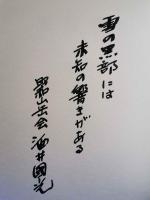 雪の黒部には
未知の響きがある
昭山岳会 酒井國光